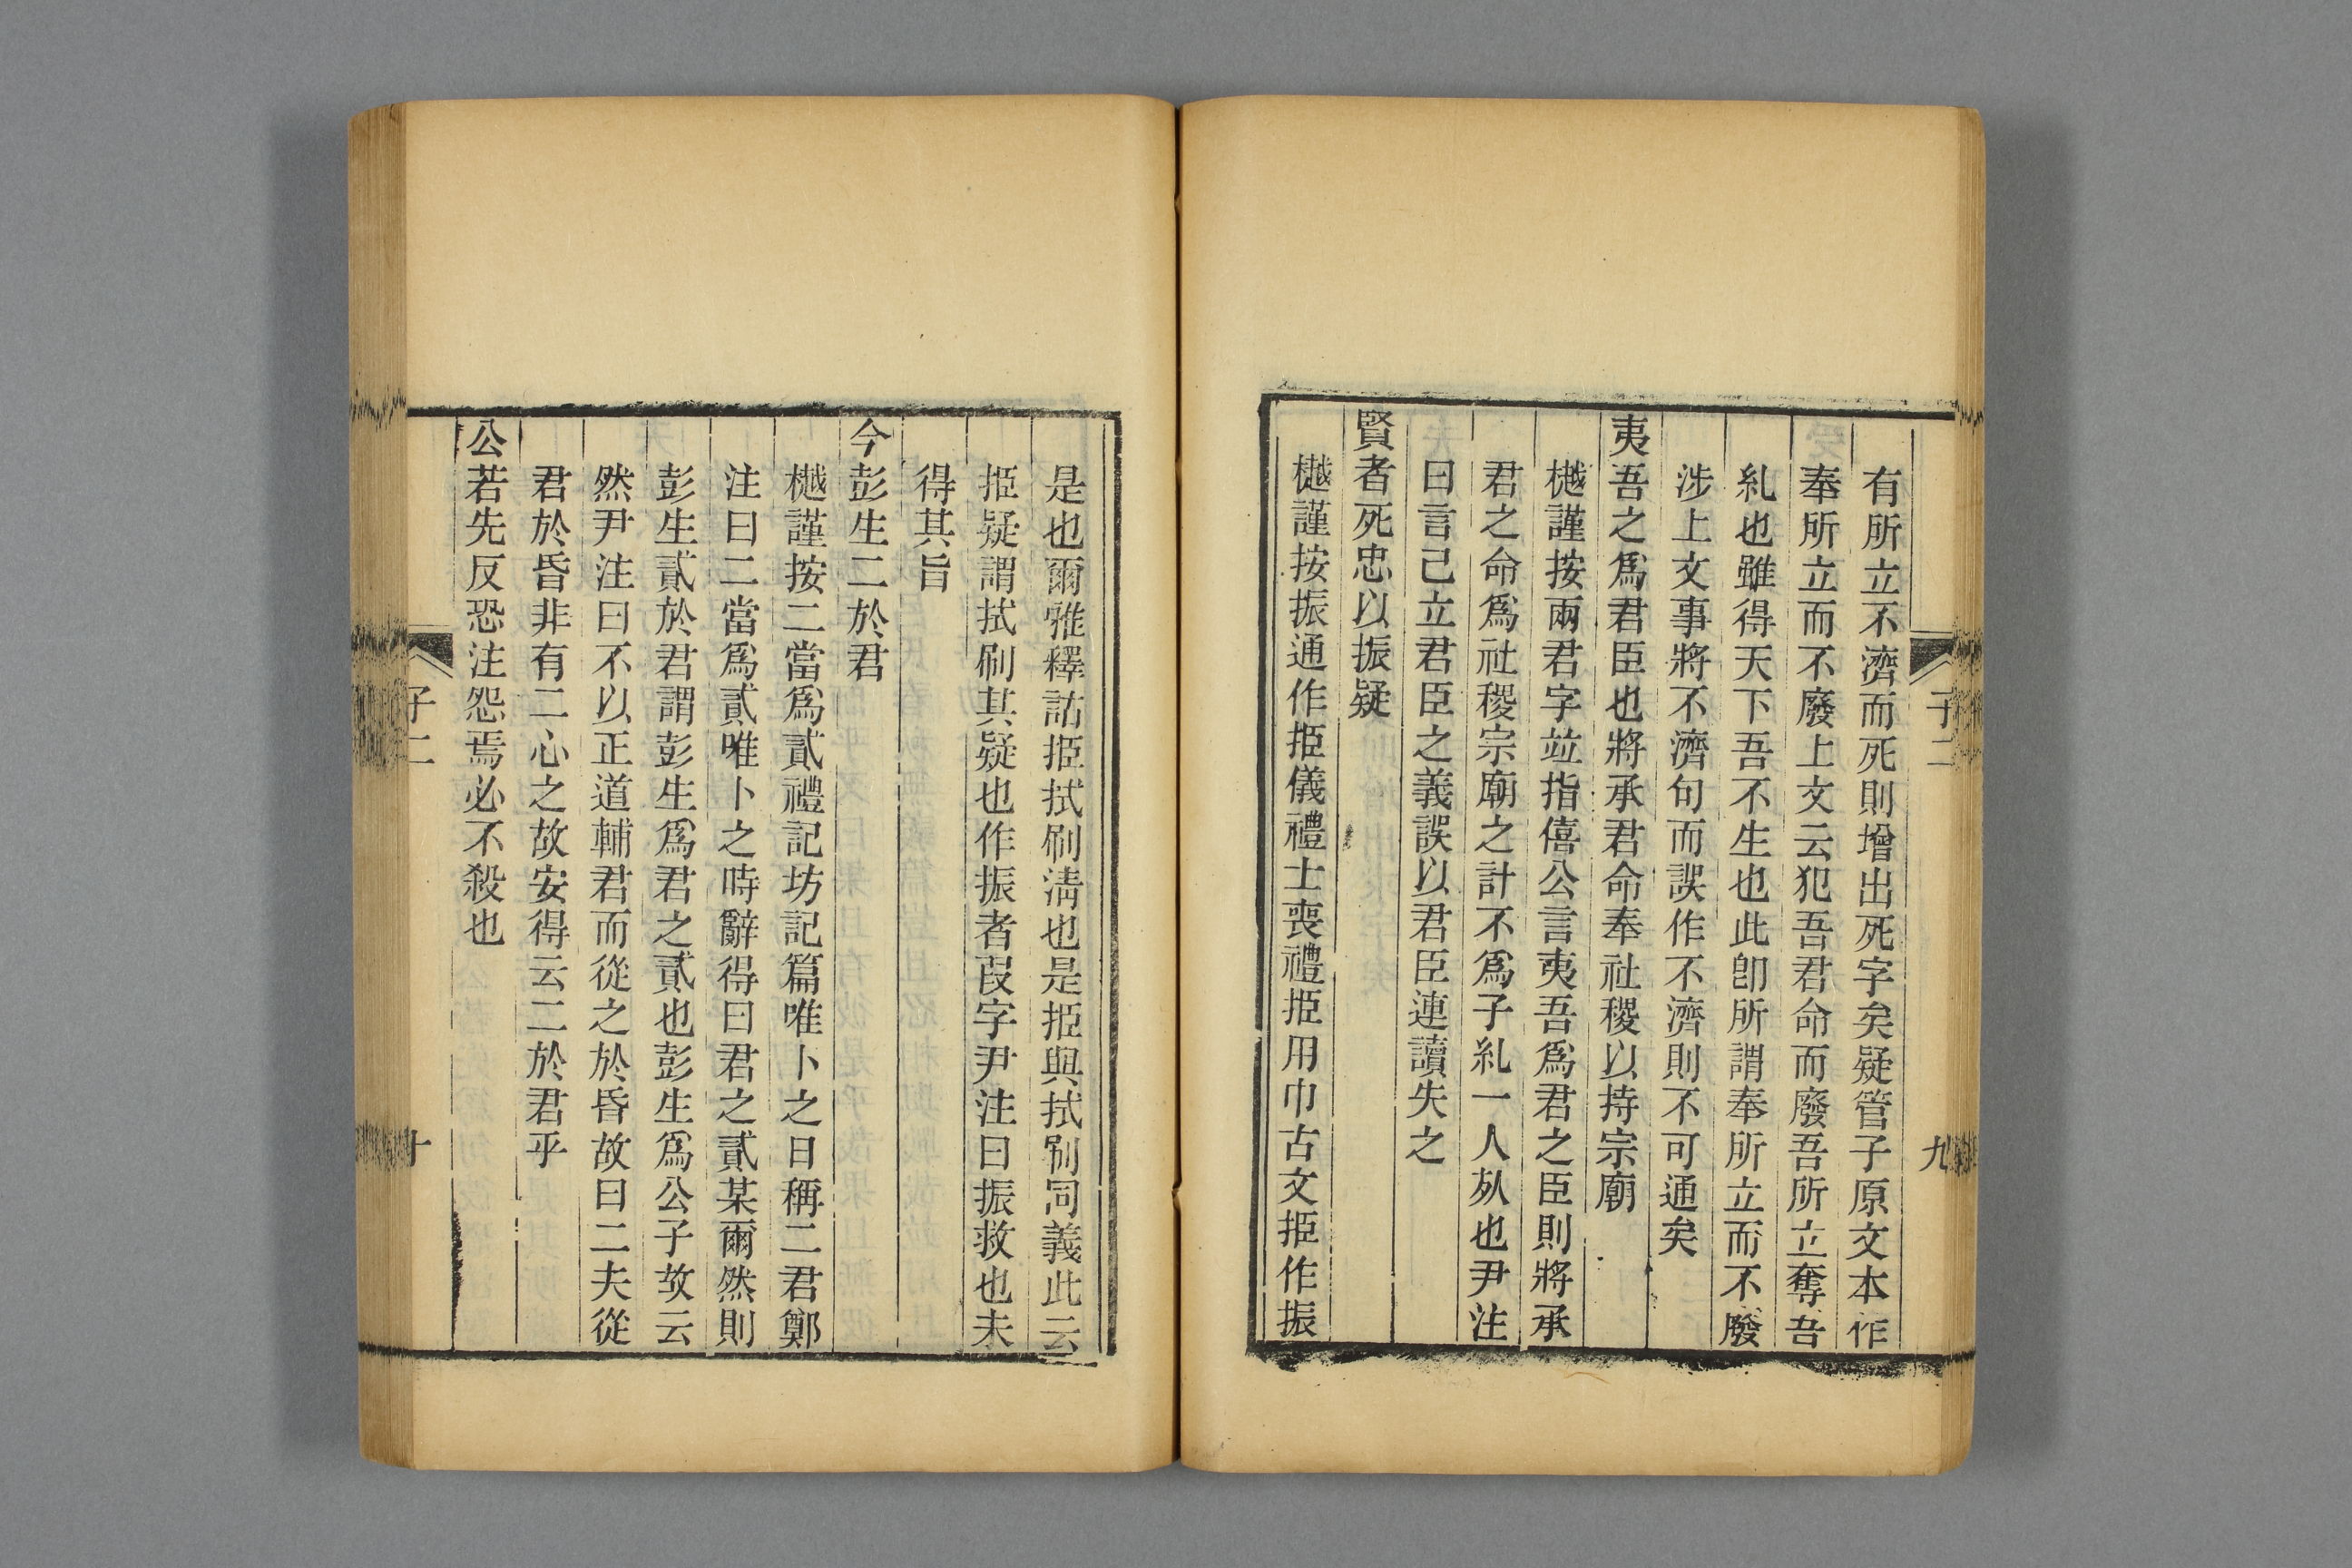 有所立不濟而死則增出死字矣疑管子原文本作
奉所立而不廢上文云犯吾君命而廢吾所立奪吾
糺也雖得天下吾不生也此卽所謂奉所立而不廢
涉上文事將不濟句而誤作不濟則不可通矣
夷吾之爲君臣也將承君命奉社稷以持宗廟
樾謹按兩君字竝指僖公言夷吾爲君之臣則將承
君之命爲社稷宗廟之計不爲子糺一人㚈也尹注
曰言己立君臣之義誤以君臣連讀失之
賢者死忠以振疑
樾謹按振通作挋儀禮士喪禮挋用巾古文挋作振
子二
九
是也爾雅釋詁挋拭刷淸也是挋與拭刷同義此云
挋疑謂拭刷其疑也作振者叚字尹注曰振救也未
得其旨
今彭生二於君
樾謹按二當爲貳禮記坊記篇唯卜之日稱二君鄭
注曰二當爲貳唯卜之時辭得曰君之貳某爾然則
彭生貳於君謂彭生爲君之貳也彭生爲公子故云
然尹注曰不以正道輔君而從之於昏故曰二夫從
君於昏非有二心之故安得云二於君乎
公若先反恐注怨焉必不殺也
子二
十